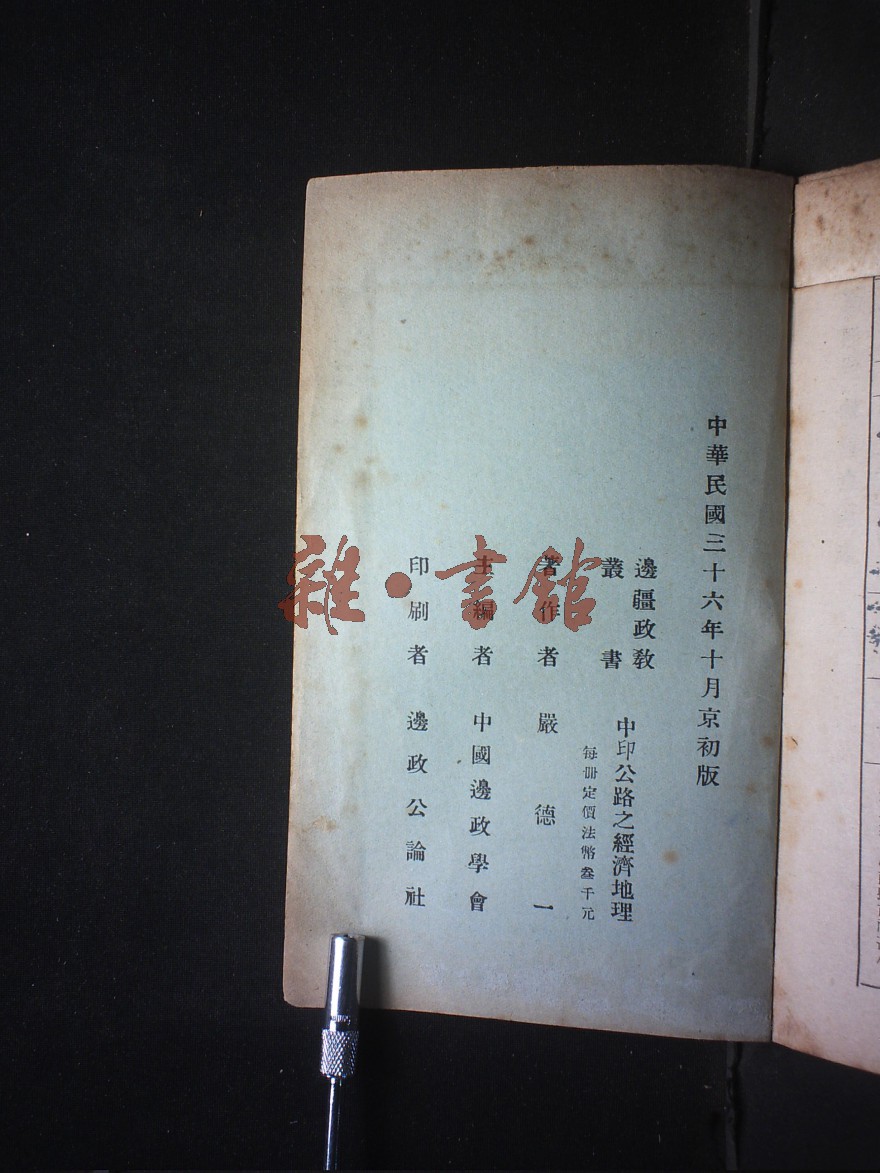 中華民國三十六年十月京初版
邊疆政敎
叢書
中印公路之經濟地理
每冊定價法幣叁千元
著作者 嚴德一
主編者 中國邊政學會
印刷者 邊政公論社
雜·書館